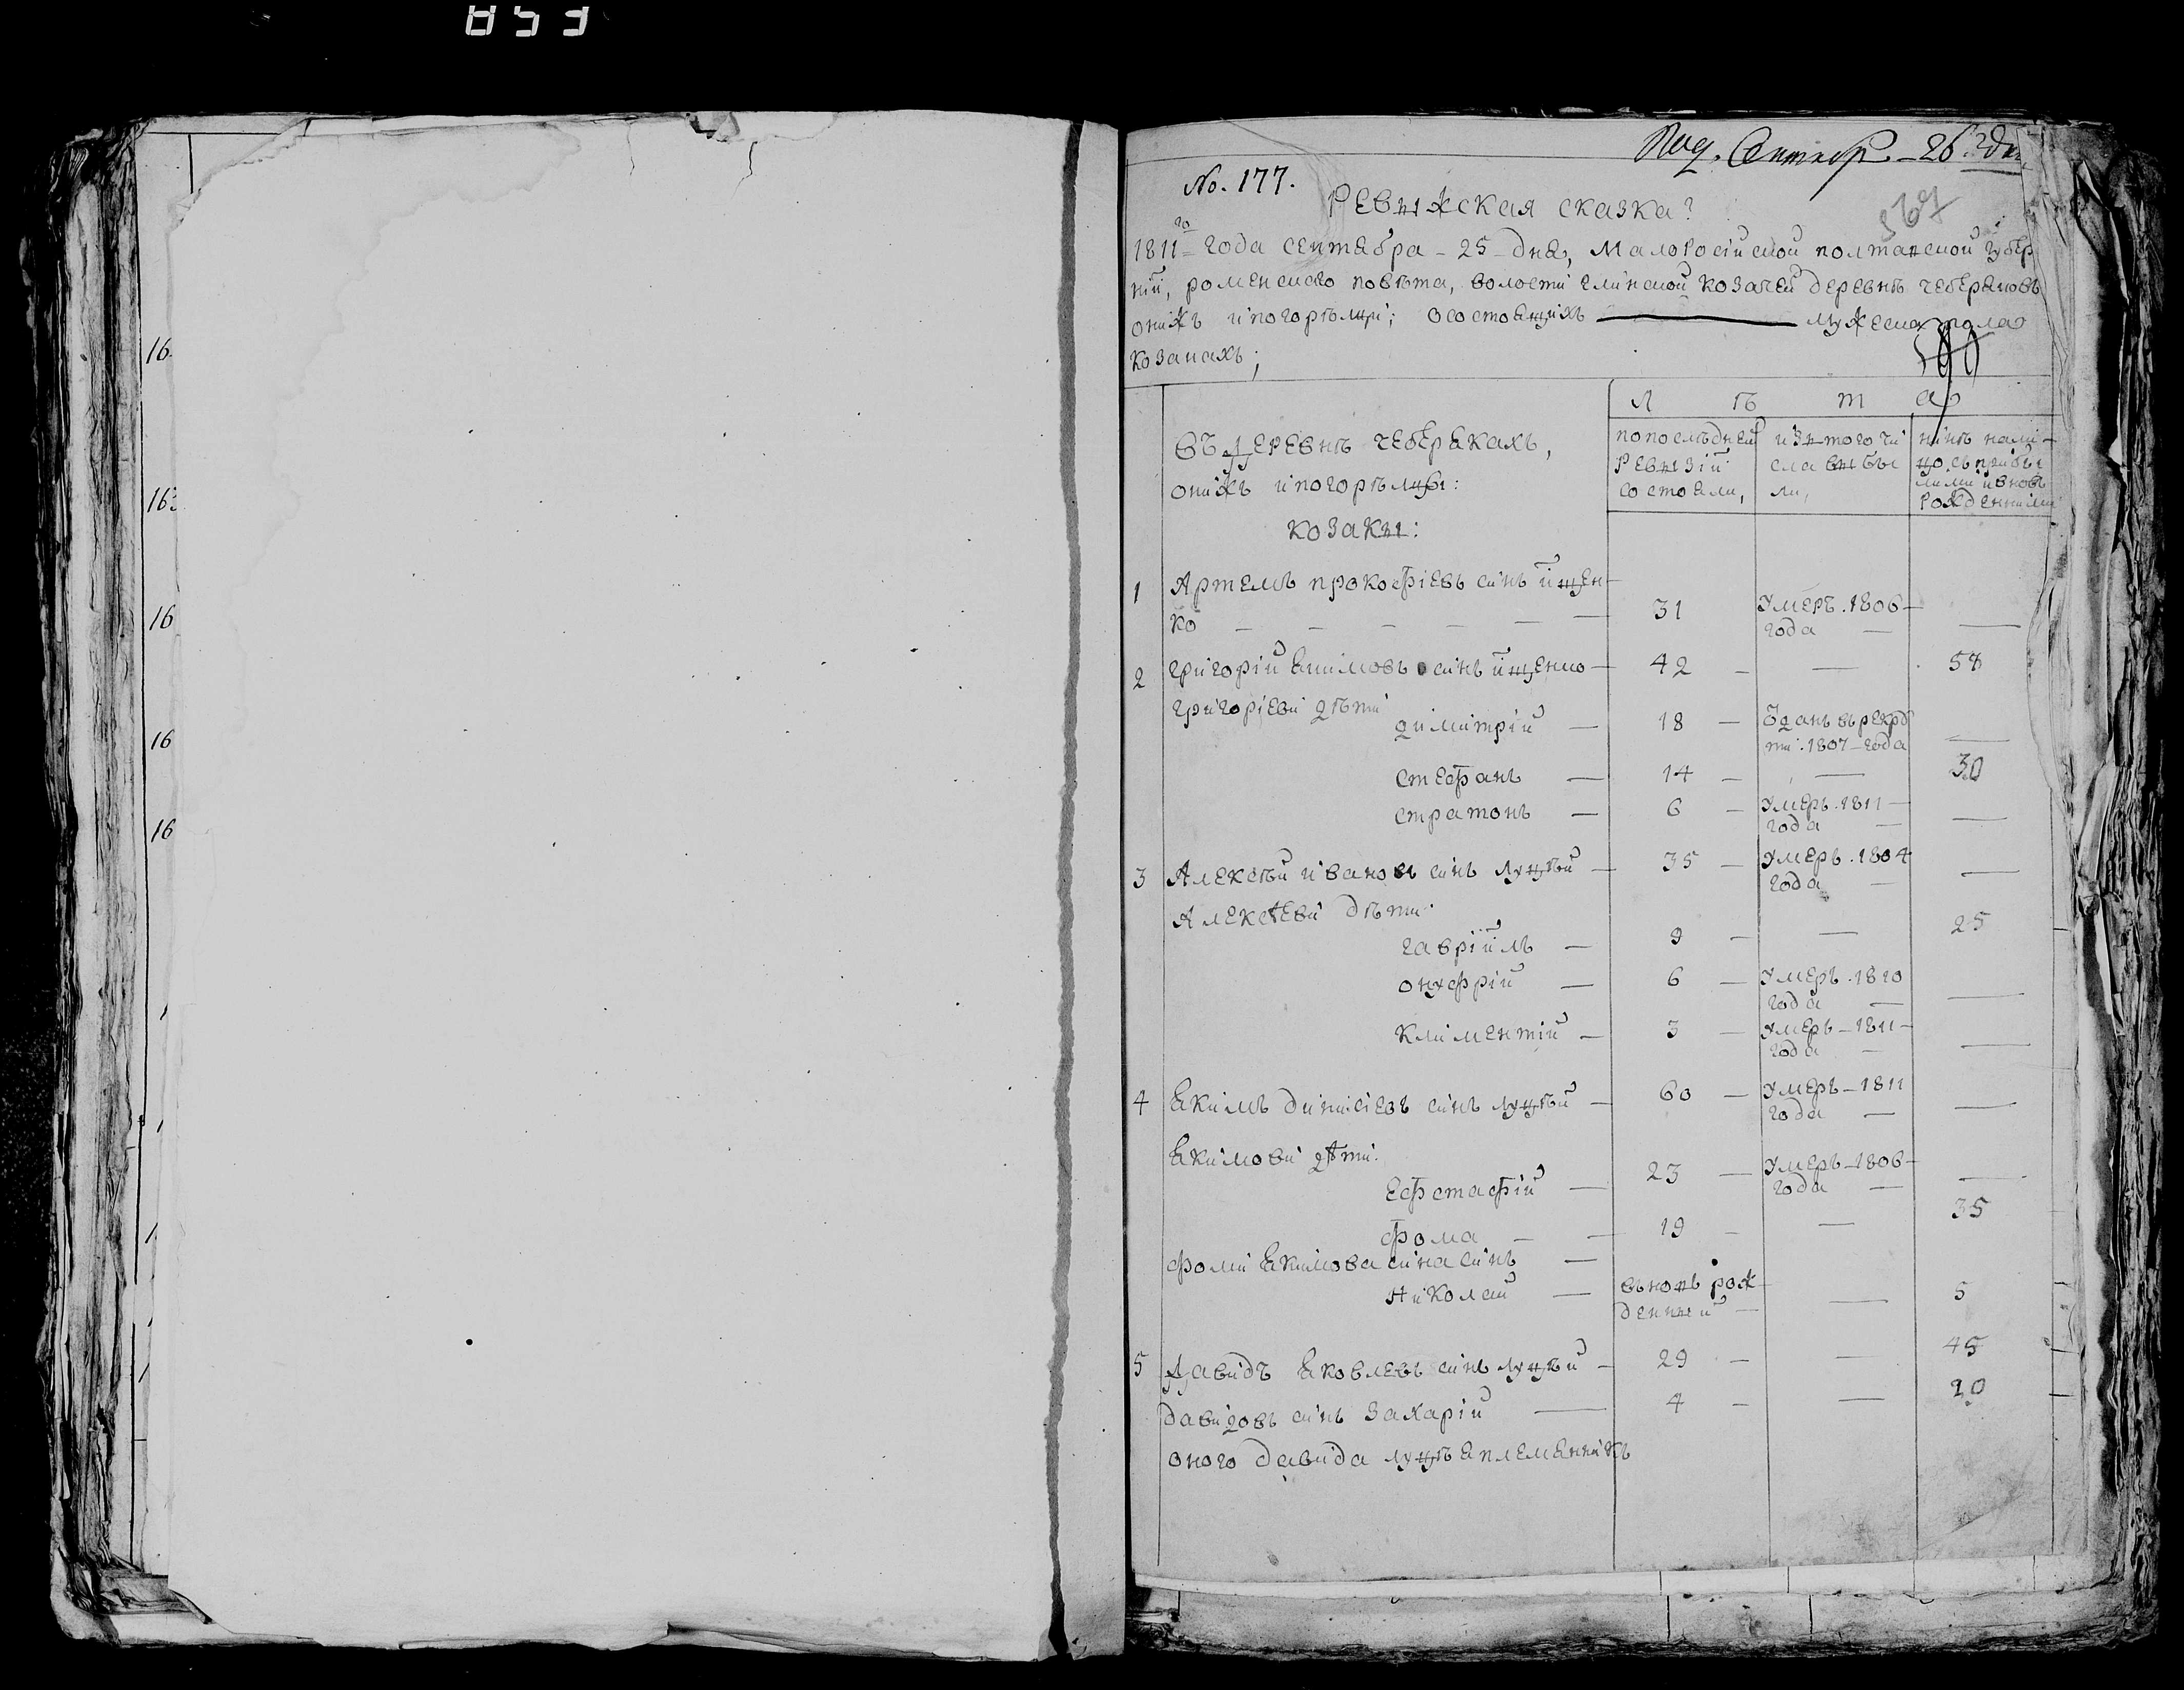 853
Под. Сентяб. 26 го дня
No. 177.
567
Ревыжская сказка?
1811 го года сентября - 25 - дня, Малоросійской полтавской губер
ній, роменского повѣта, волости глинской козачей деревнѣ чеберяковъ
онижъ и погорѣлци; о состоящихъ мужеска пола
козакахъ;
Л ѣ т а
въ деревнѣ чеберякахъ,
онижъ и погорѣлцы:
козакы:
попослѣдней ревызій состояли,
изътого чи сла выбы ли,
нинѣ нали цо съ прибы лими и вновь рожденними
1 Артемъ прокофіевъ синъ ищен
ко — 31 умеръ. 1806 года —
2 григорій Екимовъ синъ ищенко — 42 — 58
григоріеви дѣти
димитрій — 18 — Зданъ въ рекру ти. 1807 года —
стефанъ — 14 — 30
стратонъ — 6 — умеръ. 1811 года —
3 Алексѣй ивановъ синъ луцѣй — 35 — умеръ. 1804 года —
Алексѣеви дѣти
гавріилъ — 9 — 25
онуфрій — 6 — умеръ. 1810 года —
климентій — 3 — умеръ - 1811 года —
4 Екимъ динисіевъ синъ луцѣй — 60 — умеръ - 1811 года —
Екимови дѣти.
Ефстафій — 23 — умеръ - 1806 года —
фома — 19 — 35
фоми Екимова сина синъ —
Николай — вьновь рож денный — 5
5 Давидъ Яковлевъ синъ луцѣй — 29 — 45
давидовъ синъ Захарій — 4 — 20
оного давида луцѣя племенникъ
16
16
16
16
16